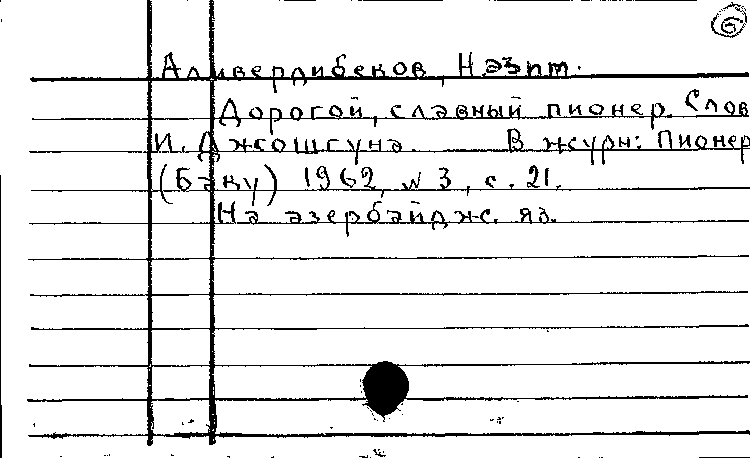 6
Аливердибеков, Нәзим.
Дорогой, славный пионер. Слов
И. Джошгуна. В журн: Пионер
(Баку) 1962, № 3, с. 21.
На азербайдж. яз.